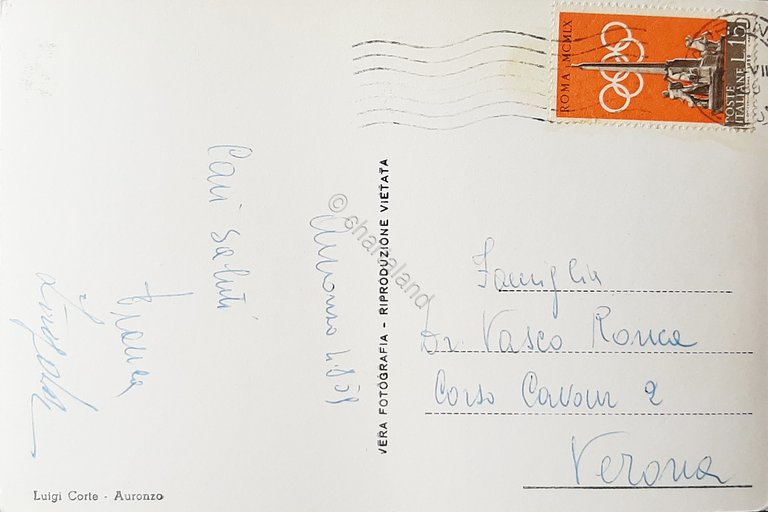 Auronzo
Cari saluti
Franca
Luigi Corte - Auronzo
VERA FOTOGRAFIA - RIPRODUZIONE VIETATA
© charaland
ROMA · MCMLX
POSTE ITALIANE L.15
Famiglia
Dr. Vasco Ronca
Corso Cavour 2
Verona